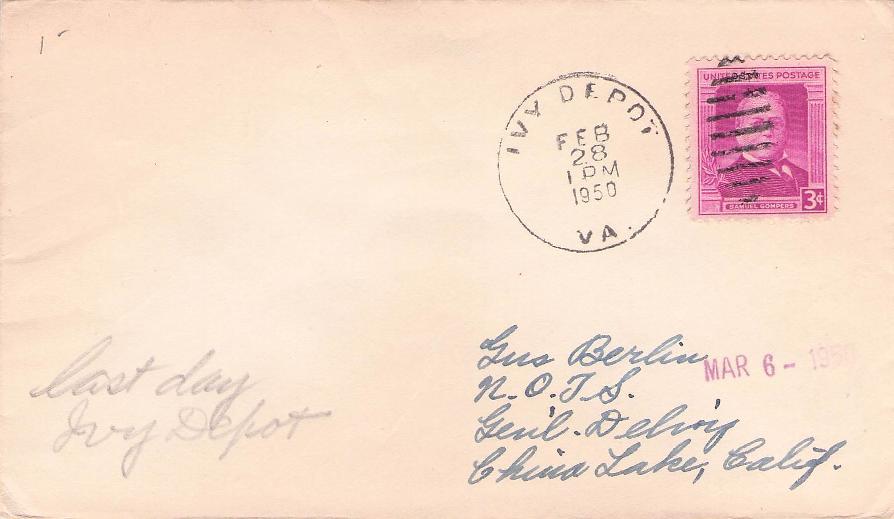 IVY DEPOT
FEB
28
1 PM
1950
VA.
UNITED STATES POSTAGE
SAMUEL GOMPERS
3¢
last day
Ivy Depot
Gus Berlin
N.O.T.S.
Gen'l. Delv'y
China Lake, Calif.
MAR 6 - 1950